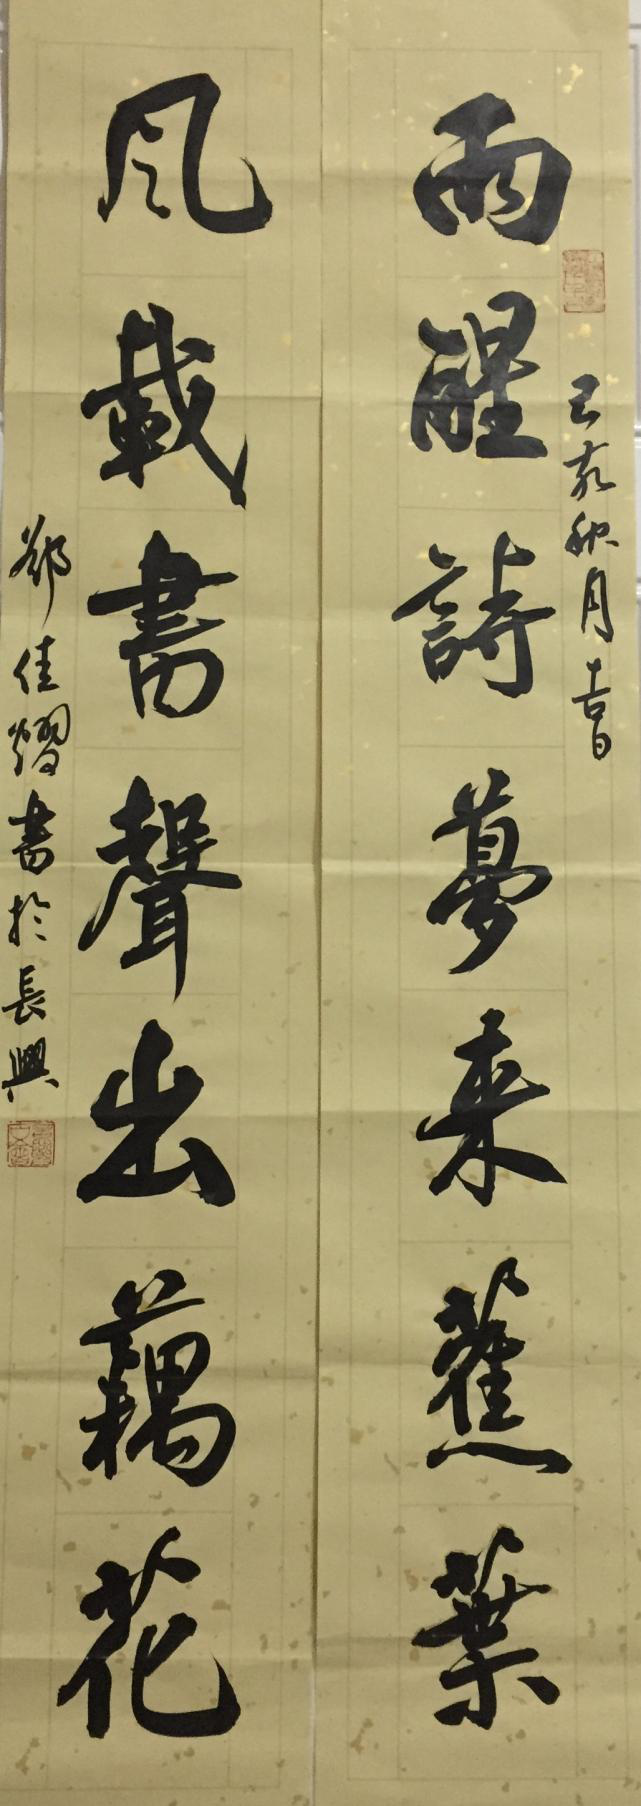 雨醒詩夢来蕉葉
己亥秋月吉日
风載書聲出藕花
鄭佳熠書於長興